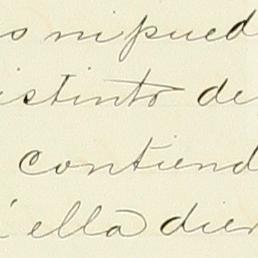 s ni pued
istinto de
contiend
ella dier